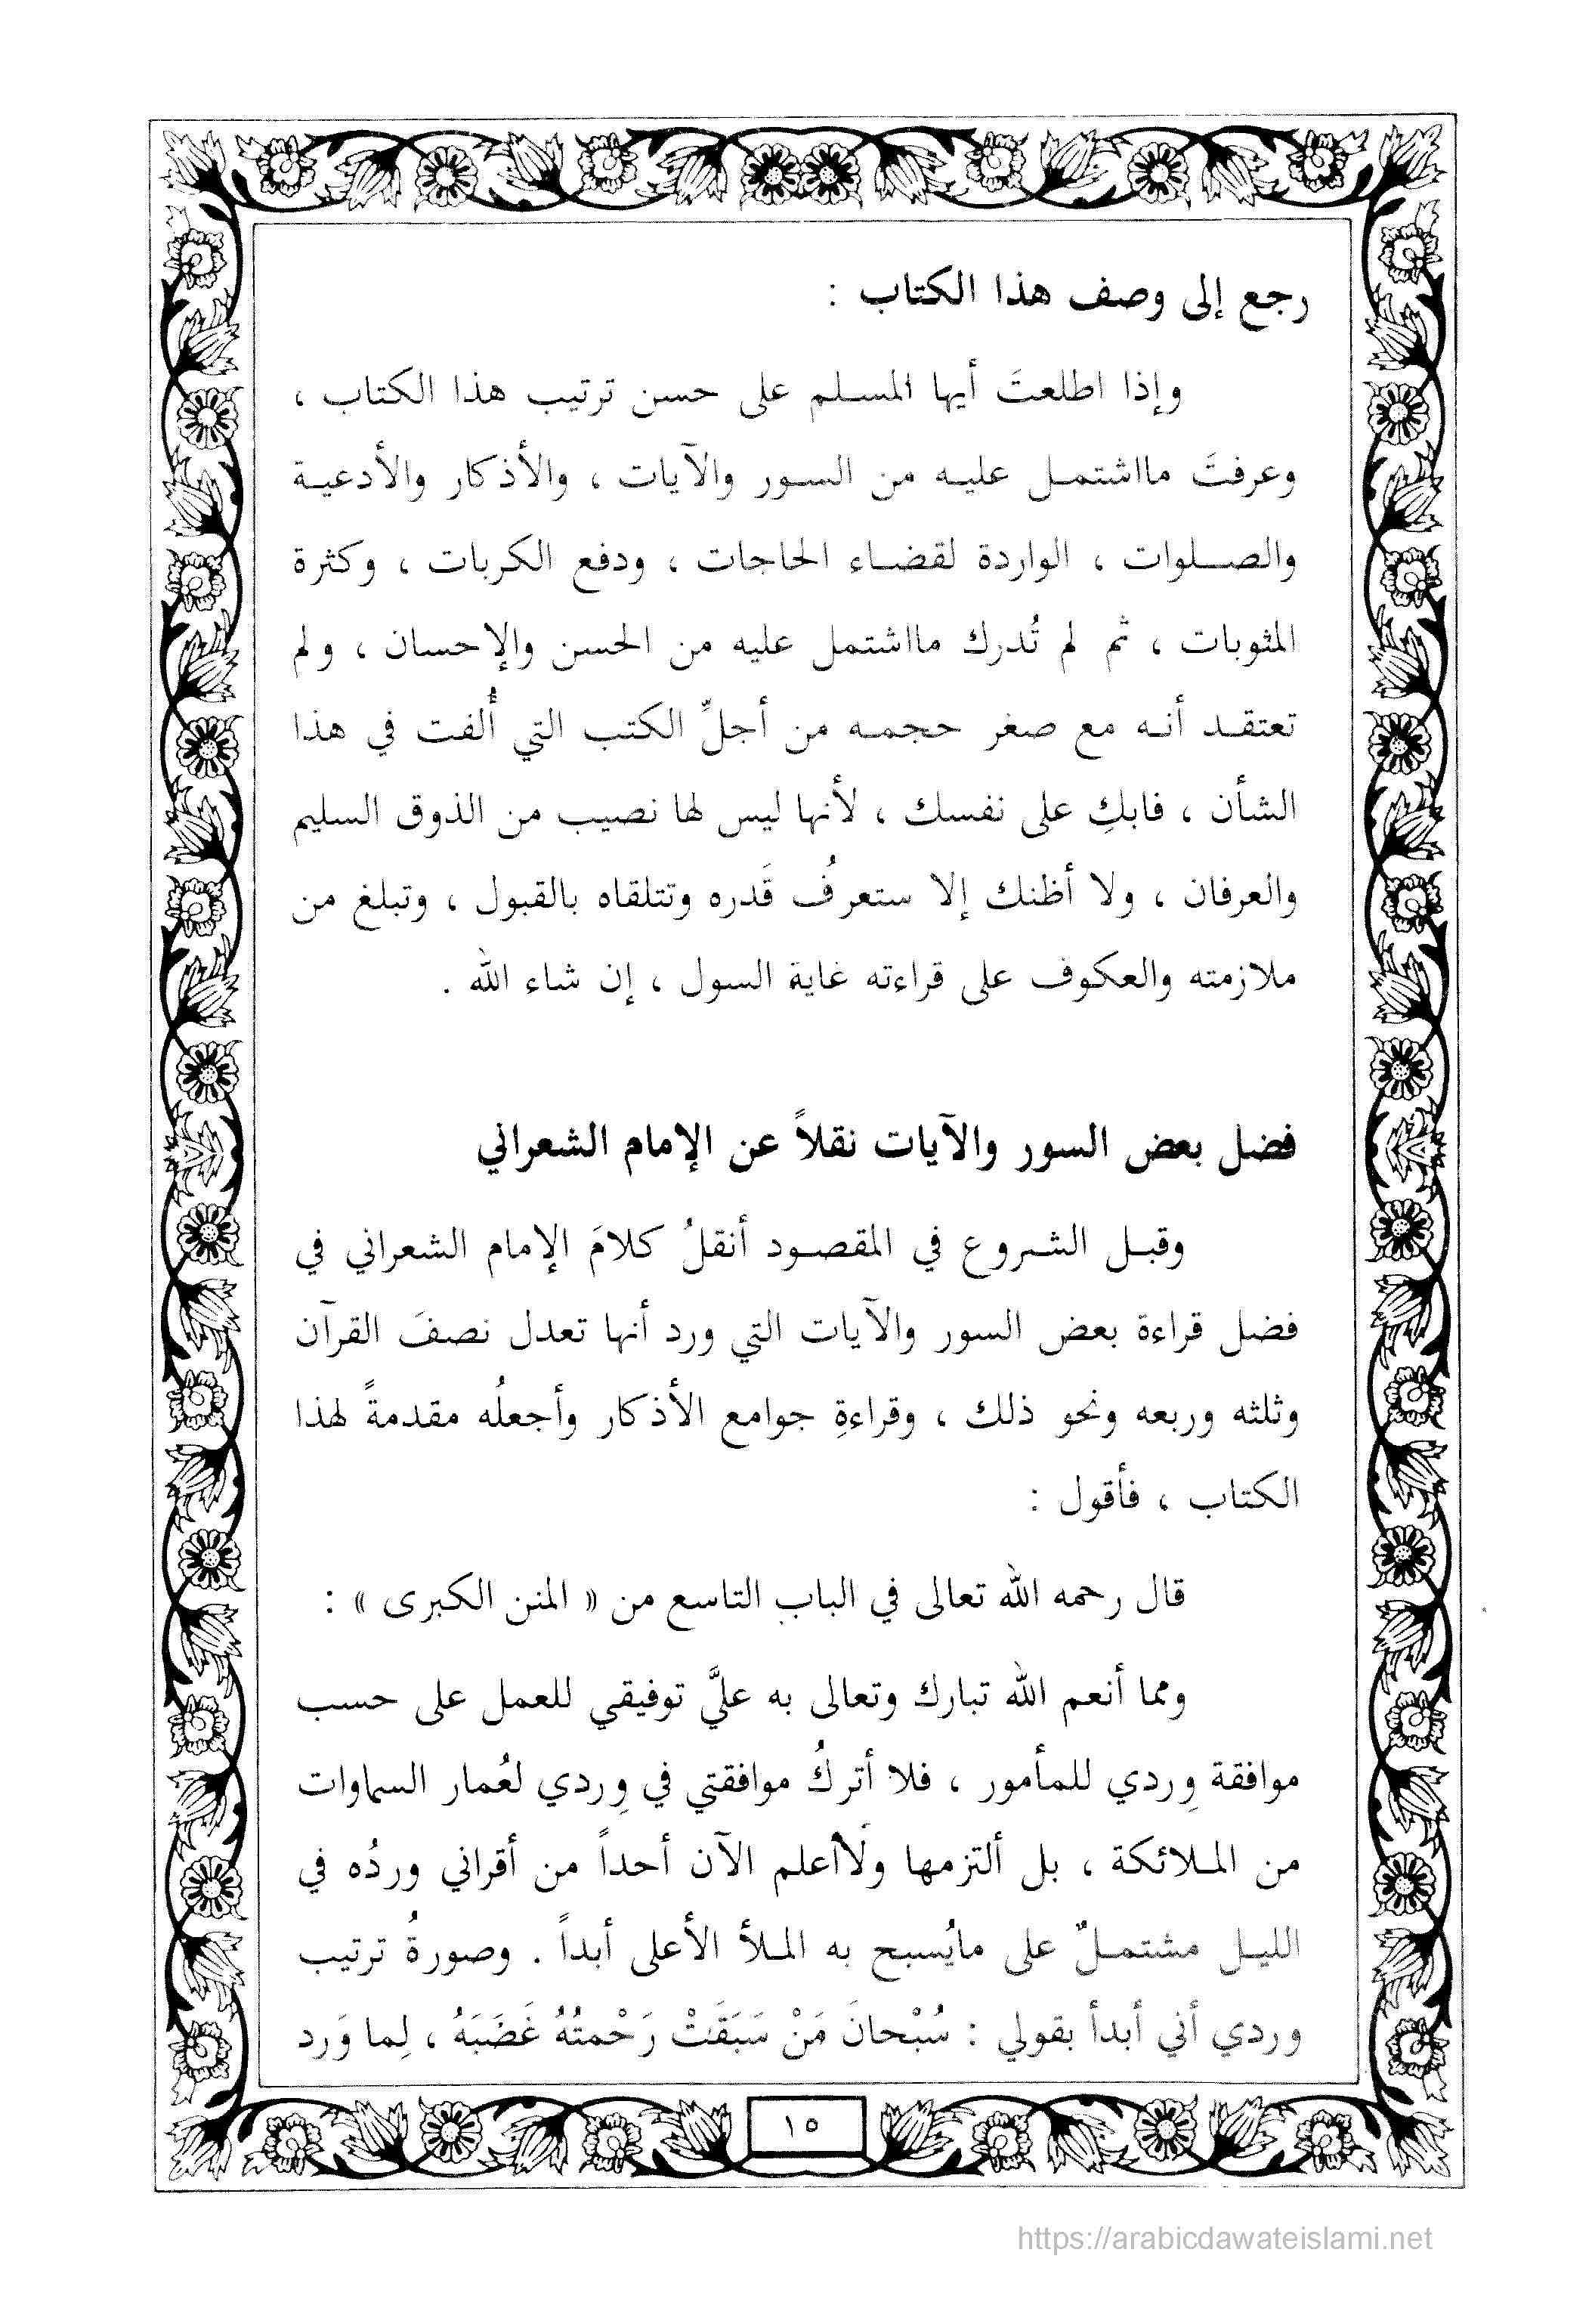 رجع إلى وصف هذا الكتاب :
وإذا اطلعتَ أيها المسلم على حسن ترتيب هذا الكتاب ،
وعرفتَ مااشتمل عليه من السور والآيات ، والأذكار والأدعية
والصلوات ، الواردة لقضاء الحاجات ، ودفع الكربات ، وكثرة
المثوبات ، ثم لم تُدرك مااشتمل عليه من الحسن والإحسان ، ولم
تعتقد أنه مع صغر حجمه من أجلِّ الكتب التي أُلفت في هذا
الشأن ، فابكِ على نفسك ، لأنها ليس لها نصيب من الذوق السليم
والعرفان ، ولا أظنك إلا ستعرفُ قَدره وتتلقاه بالقبول ، وتبلغ من
ملازمته والعكوف على قراءته غاية السول ، إن شاء الله .
فضل بعض السور والآيات نقلاً عن الإمام الشعراني
وقبل الشروع في المقصود أنقلُ كلامَ الإمام الشعراني في
فضل قراءة بعض السور والآيات التي ورد أنها تعدل نصفَ القرآن
وثلثه وربعه ونحو ذلك ، وقراءةِ جوامع الأذكار وأجعلُه مقدمةً لهذا
الكتاب ، فأقول :
قال رحمه الله تعالى في الباب التاسع من « المنن الكبرى » :
ومما أنعم الله تبارك وتعالى به عليَّ توفيقي للعمل على حسب
موافقة وِردي للمأمور ، فلا أتركُ موافقتي في وِردي لعُمار السماوات
من الملائكة ، بل ألتزمها ولاأعلم الآن أحداً من أقراني وردُه في
الليل مشتملٌ على مايُسبح به الملأ الأعلى أبداً . وصورةُ ترتيب
وردي أني أبدأ بقولي : سُبْحانَ مَنْ سَبَقَتْ رَحْمتُهُ غَضَبَهُ ، لِما وَرد
١٥
https://arabicdawateislami.net